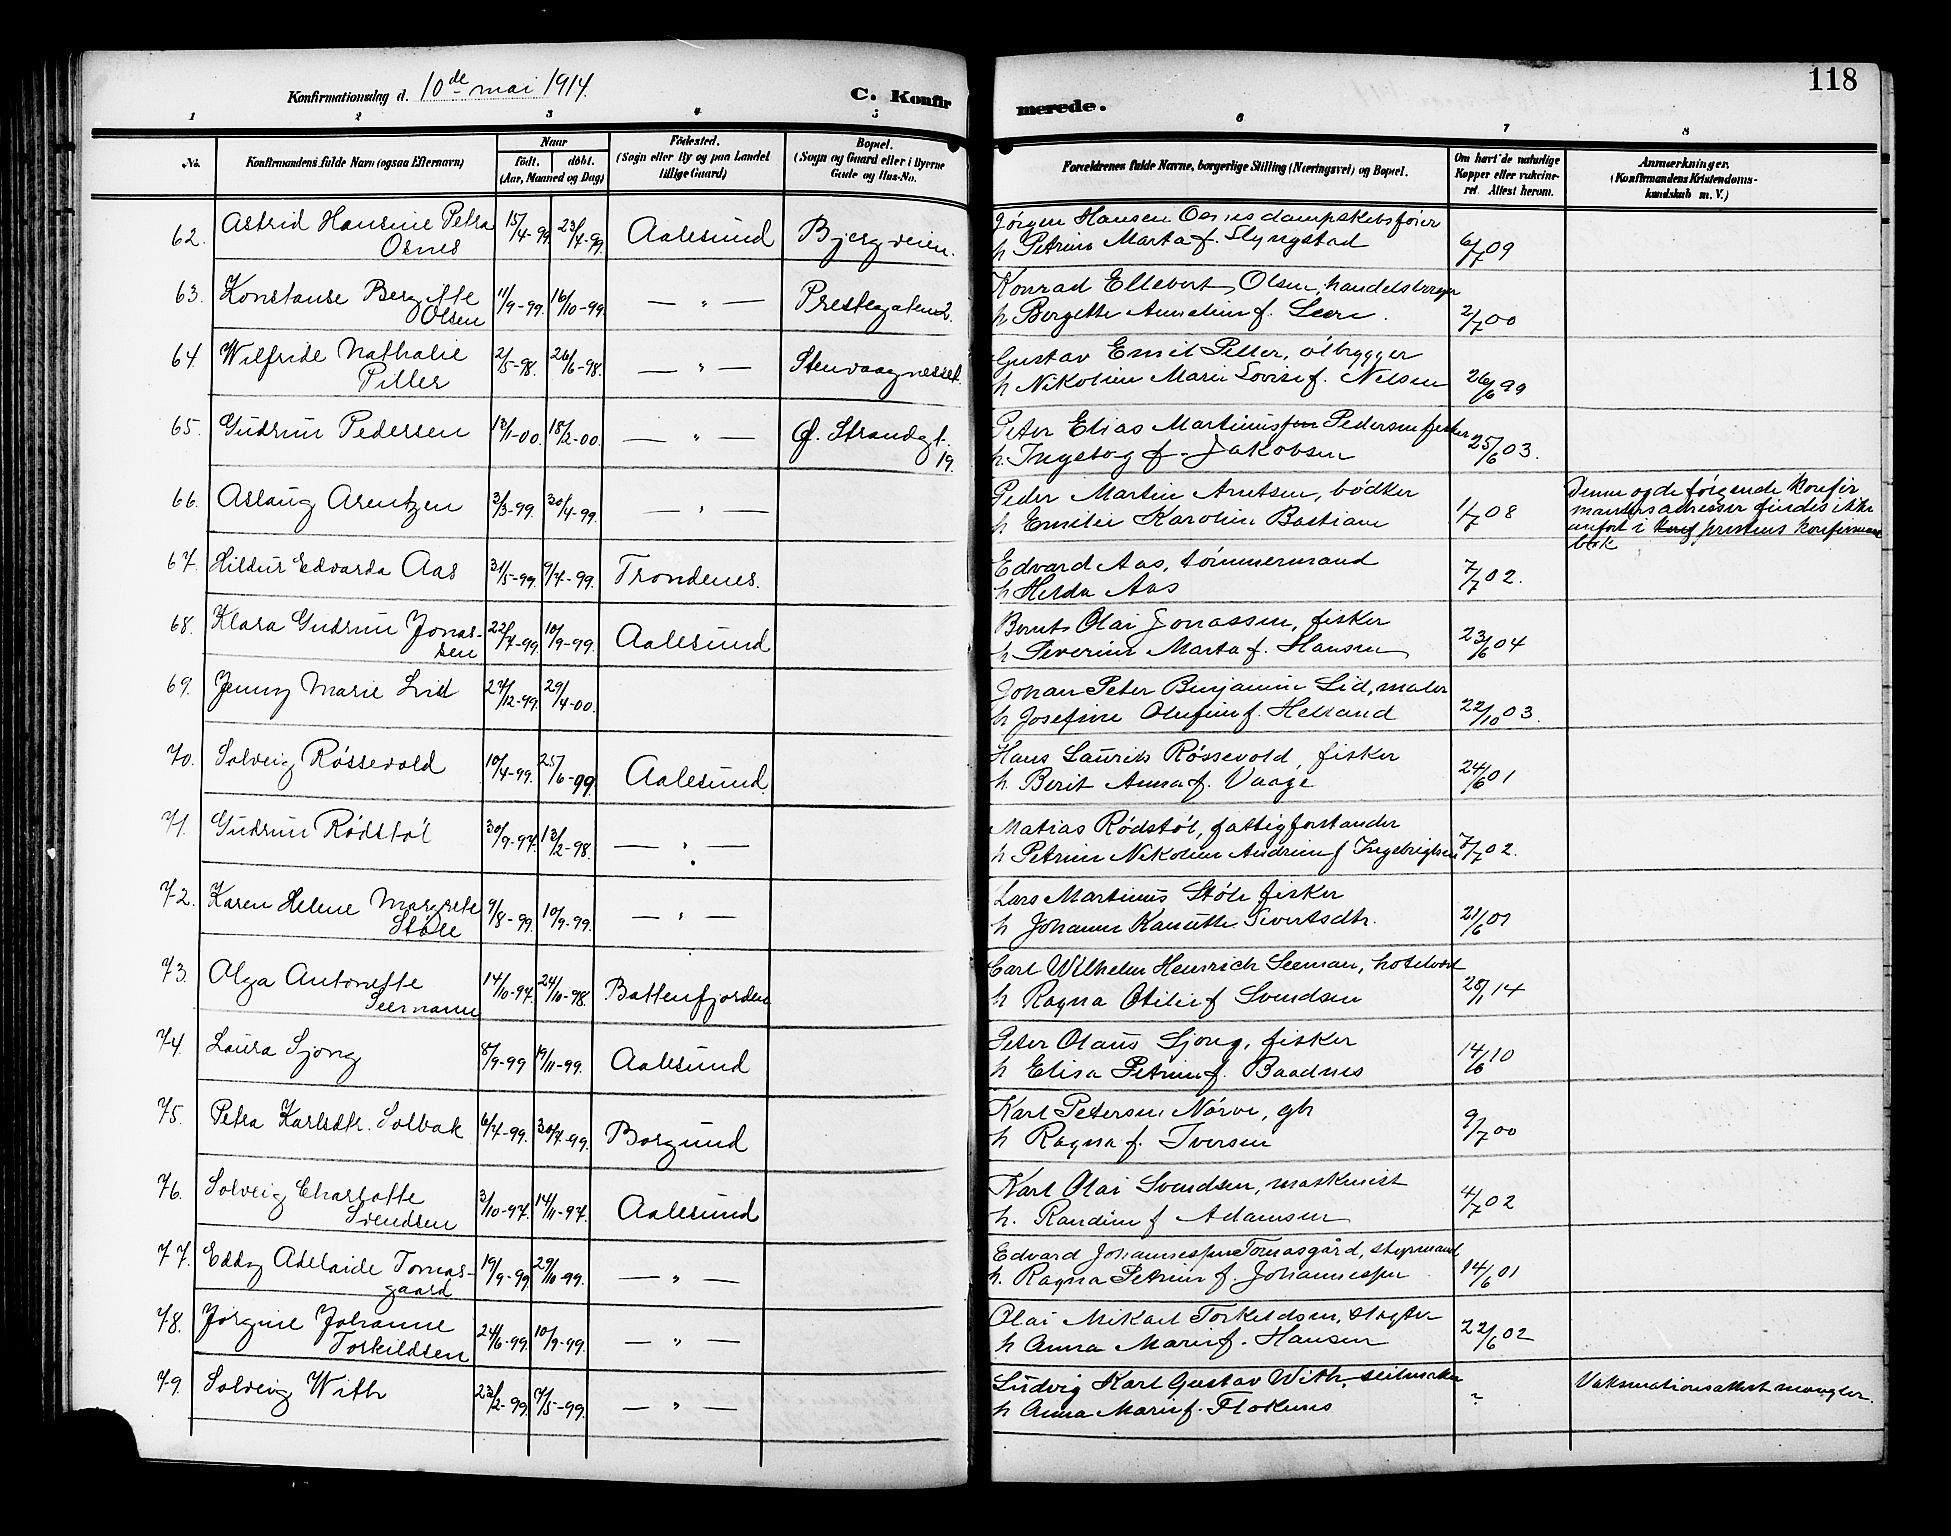 118
Konfirmationsdag d. 10de mai 1914.
C. Konfirmerede.
1 2 3 4 5 6 7 8
No. Konfirmandens fulde Navn (ogsaa Efternavn) Naar født. døbt. (Aar, Maaned og Dag) Fødested. (Sogn eller By og paa Landet tillige Gaard) Bopæl. (Sogn og Gaard eller i Byerne Gade og Hus-No. Forældrenes fulde Navne, borgerlige Stilling (Næringsvei) og Bopæl. Om havt de naturlige Kopper eller vakcineret. Attest herom. Anmærkninger. (Konfirmandens Kristendomskundskab m. V.)
62. Astrid Hansine Petra Osnes 15/4-99 23/4-99 Aalesund Bjergveien. Jørgen Hansen Osnes dampskibsfører
h Petrine Marta f. Slyngstad 6/7 09
63. Konstanse Bergitte Olsen 11/9-99. 16/10-99 — " — Prestegaten 2. Konrad Ellevert Olsen, handelsborger
h Bergette Anneline f. 2/7 00
64. Wilfride Nathalie Piller 2/5-98. 26/6-98. — " — Stenvaagnesset. Gustav Emil Piller, ølbrygger
h Nikoline Marie Lovise f. Nelsen 26/6 99
65. Gudrun Pedersen 12/1-00. 18/2-00. — " — Ø. Strandgt. 19. Peter Elias Martinus Pedersen fisker
h. Ingeborg f. Jakobsen 25/6 03.
66. Aslaug Arentzen 3/3-99. 30/4-99. — " — Peder Martin Arntsen, bødker
h Emilie Karoline Bastian 1/7 08 Denne og de følgende konfirmanders adresser findes ikke anført i prestens konfirmant bok
67. Hildur Edvarda Aas 31/5-99. 9/7-99. Trondenes. Edvard Aas, tømmermand
h Helda Aas 7/7 02.
68. Klara Gudrun Jonassen 22/7-99 10/9-99. Aalesund Bernt Olai Jonassen, fisker
h Severine Marta f. Hansen 23/6 04
69. Jenny Marie Lid 27/12-99. 29/4-00. Johan Peter Benjamin Lid, maler
h Josefine Olufine f. Helland 22/10 03.
70. Solveig Røssevold 10/4-99. 25/6-99. Aalesund. Hans Laurits Røssevold, fisker
h Berit Anna f. Vaage 24/6 01
71. Gudrun Rødstøl 30/9-97. 13/2-98. — " — Matias Rødstøl, fattigforstander
h Petrine Nikoline Andrine f Ingebrigtsen 7/7 02.
72. Karen Helene Margrete Støle 9/8-99. 10/9-99. — " — Lars Martinus Støle fisker
h Johanne Kanutte Sivertsdtr. 21/6 07
73. Olga Antonette Seemann 14/10-97. 24/10-98. Battenfjorden Carl Wilhelm Heinrich Seeman, hotelvert
h Ragna Otilie f Svendsen 28/1 14
74. Laura Sjong 8/9-99 19/11-99. Aalesund Peter Olaus Sjong, fisker
h Elisa Petrine f. Baadnes 14/6 10
75. Petra Karlsdtr. Solbak 6/7-99. 30/7-99. Borgund Karl Petersen Nørve, gbr
h Ragna f. Iversen 9/7 00
76. Solveig Charlotte Svendsen 3/10-97. 14/11-97. Aalesund Karl Olai Svendsen, maskinist
h. Randine f Adamsen 4/7 02
77. Eddy Adelaide Tomasgaard 19/9-99 29/10-99. — " — Edvard Johannessen Tomasgård, styrmand
h. Ragna Petrine f. Johannessen 14/6 01
78. Jørgine Johanne Torkildsen 24/6-99. 10/9-99. — " — Olai Mikael Torkeldsen, slagter
h Anna Marie f. Hansen 22/6 02
79. Solveig With 23/2-99. 7/5-99. — " — Ludvig Karl Gustav With, seilmaker
h Anna Marie f. Floknes ~ Vaksinationsattest mangler.